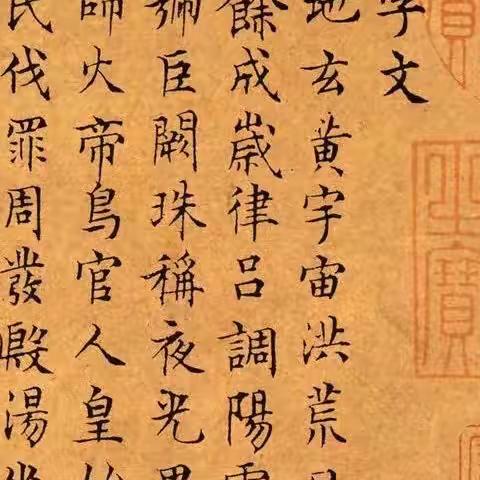 字文
地玄黃宇宙洪荒
餘成歲律呂調陽
號巨闕珠稱夜光
師火帝鳥官人皇
民伐罪周發殷湯
之寶